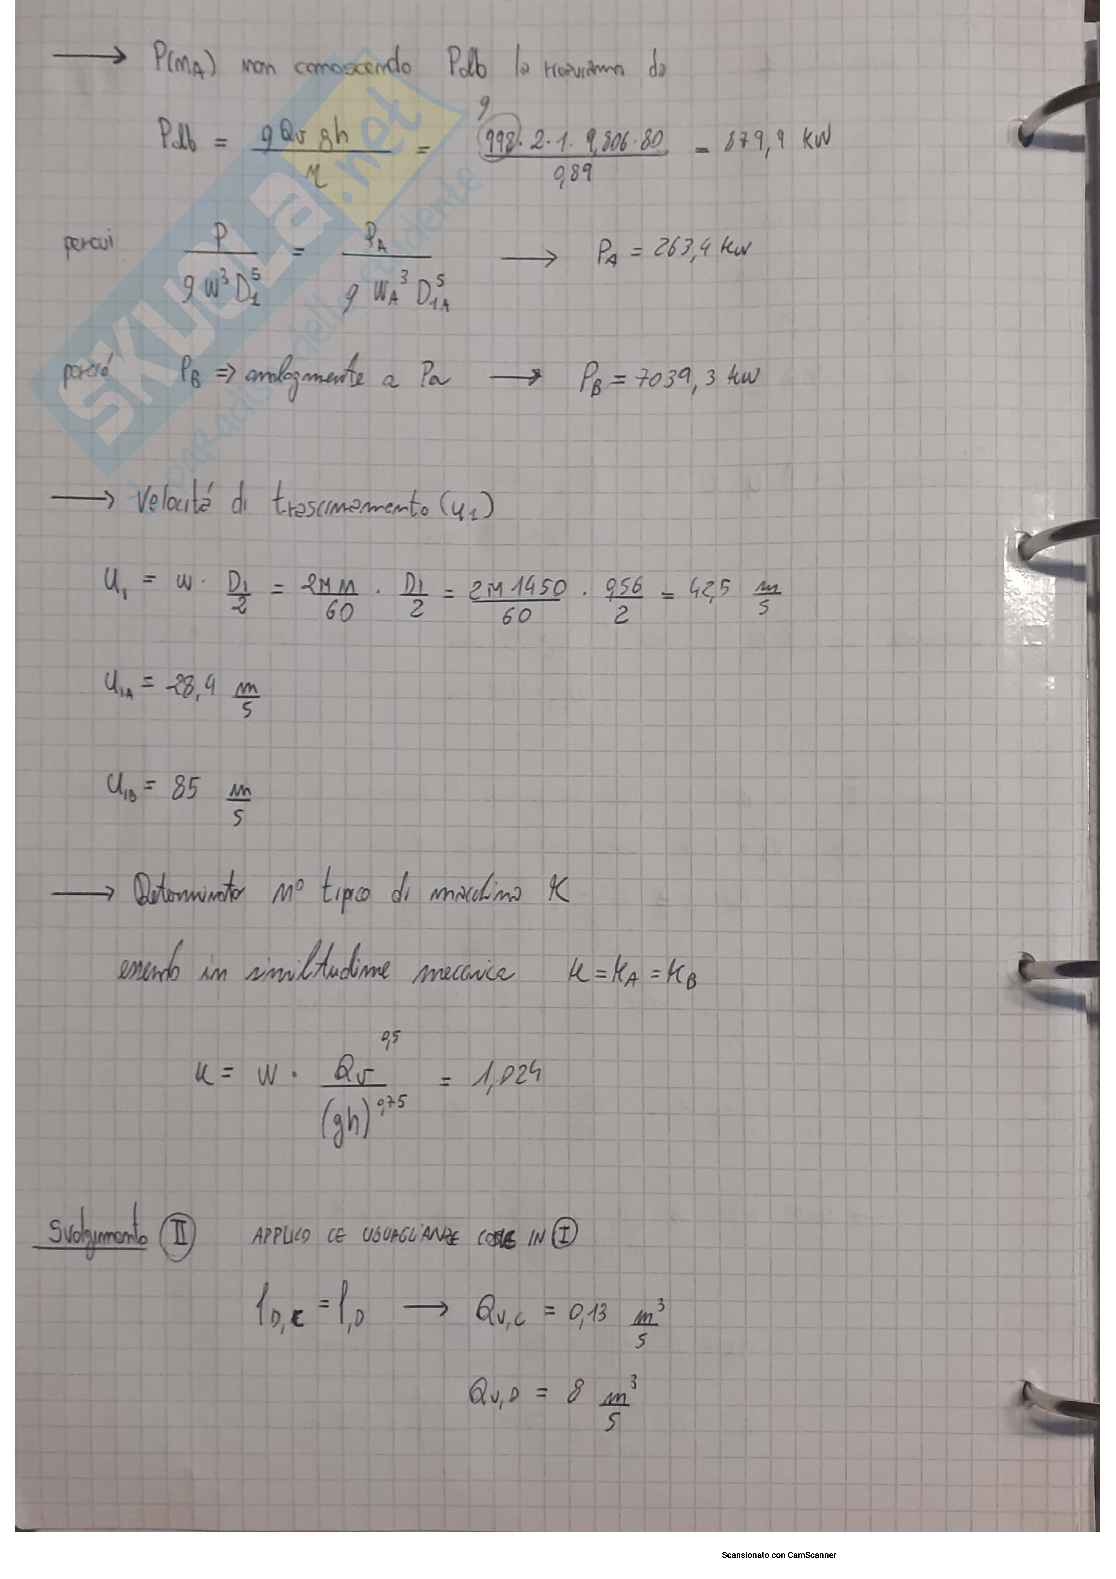 → P(n_A) non conoscendo Pdb la ricaviamo da
Pdb = ρ Qv gh / η = 998·2·1·9,806·80 / 0,89 = 879,9 kW
ρ
percui P / ρ w³ D₁⁵ = P_A / ρ w_A³ D₁A⁵ → P_A = 263,4 kW
perciò P_B => analogmente a Pa → P_B = 7039,3 kW
→ Velocitá di trascinamento (u₁)
u₁ = w · D₁/2 = 2πn/60 · D₁/2 = 2π1450/60 · 0,56/2 = 42,5 m/s
u₁A = 28,4 m/s
u₁B = 85 m/s
→ Determinato n° tipico di macchina K
essendo in similtudine meccanica K = K_A = K_B
K = w · Qv^0,5 / (gh)^0,75 = 1,024
Svolgimento II APPLICO LE UGUAGLIANZE COME IN I
φ_D,C = φ,D → Qv,C = 0,13 m³/s
Qv,D = 8 m³/s
SKUOLA.net
Scansionato con CamScanner